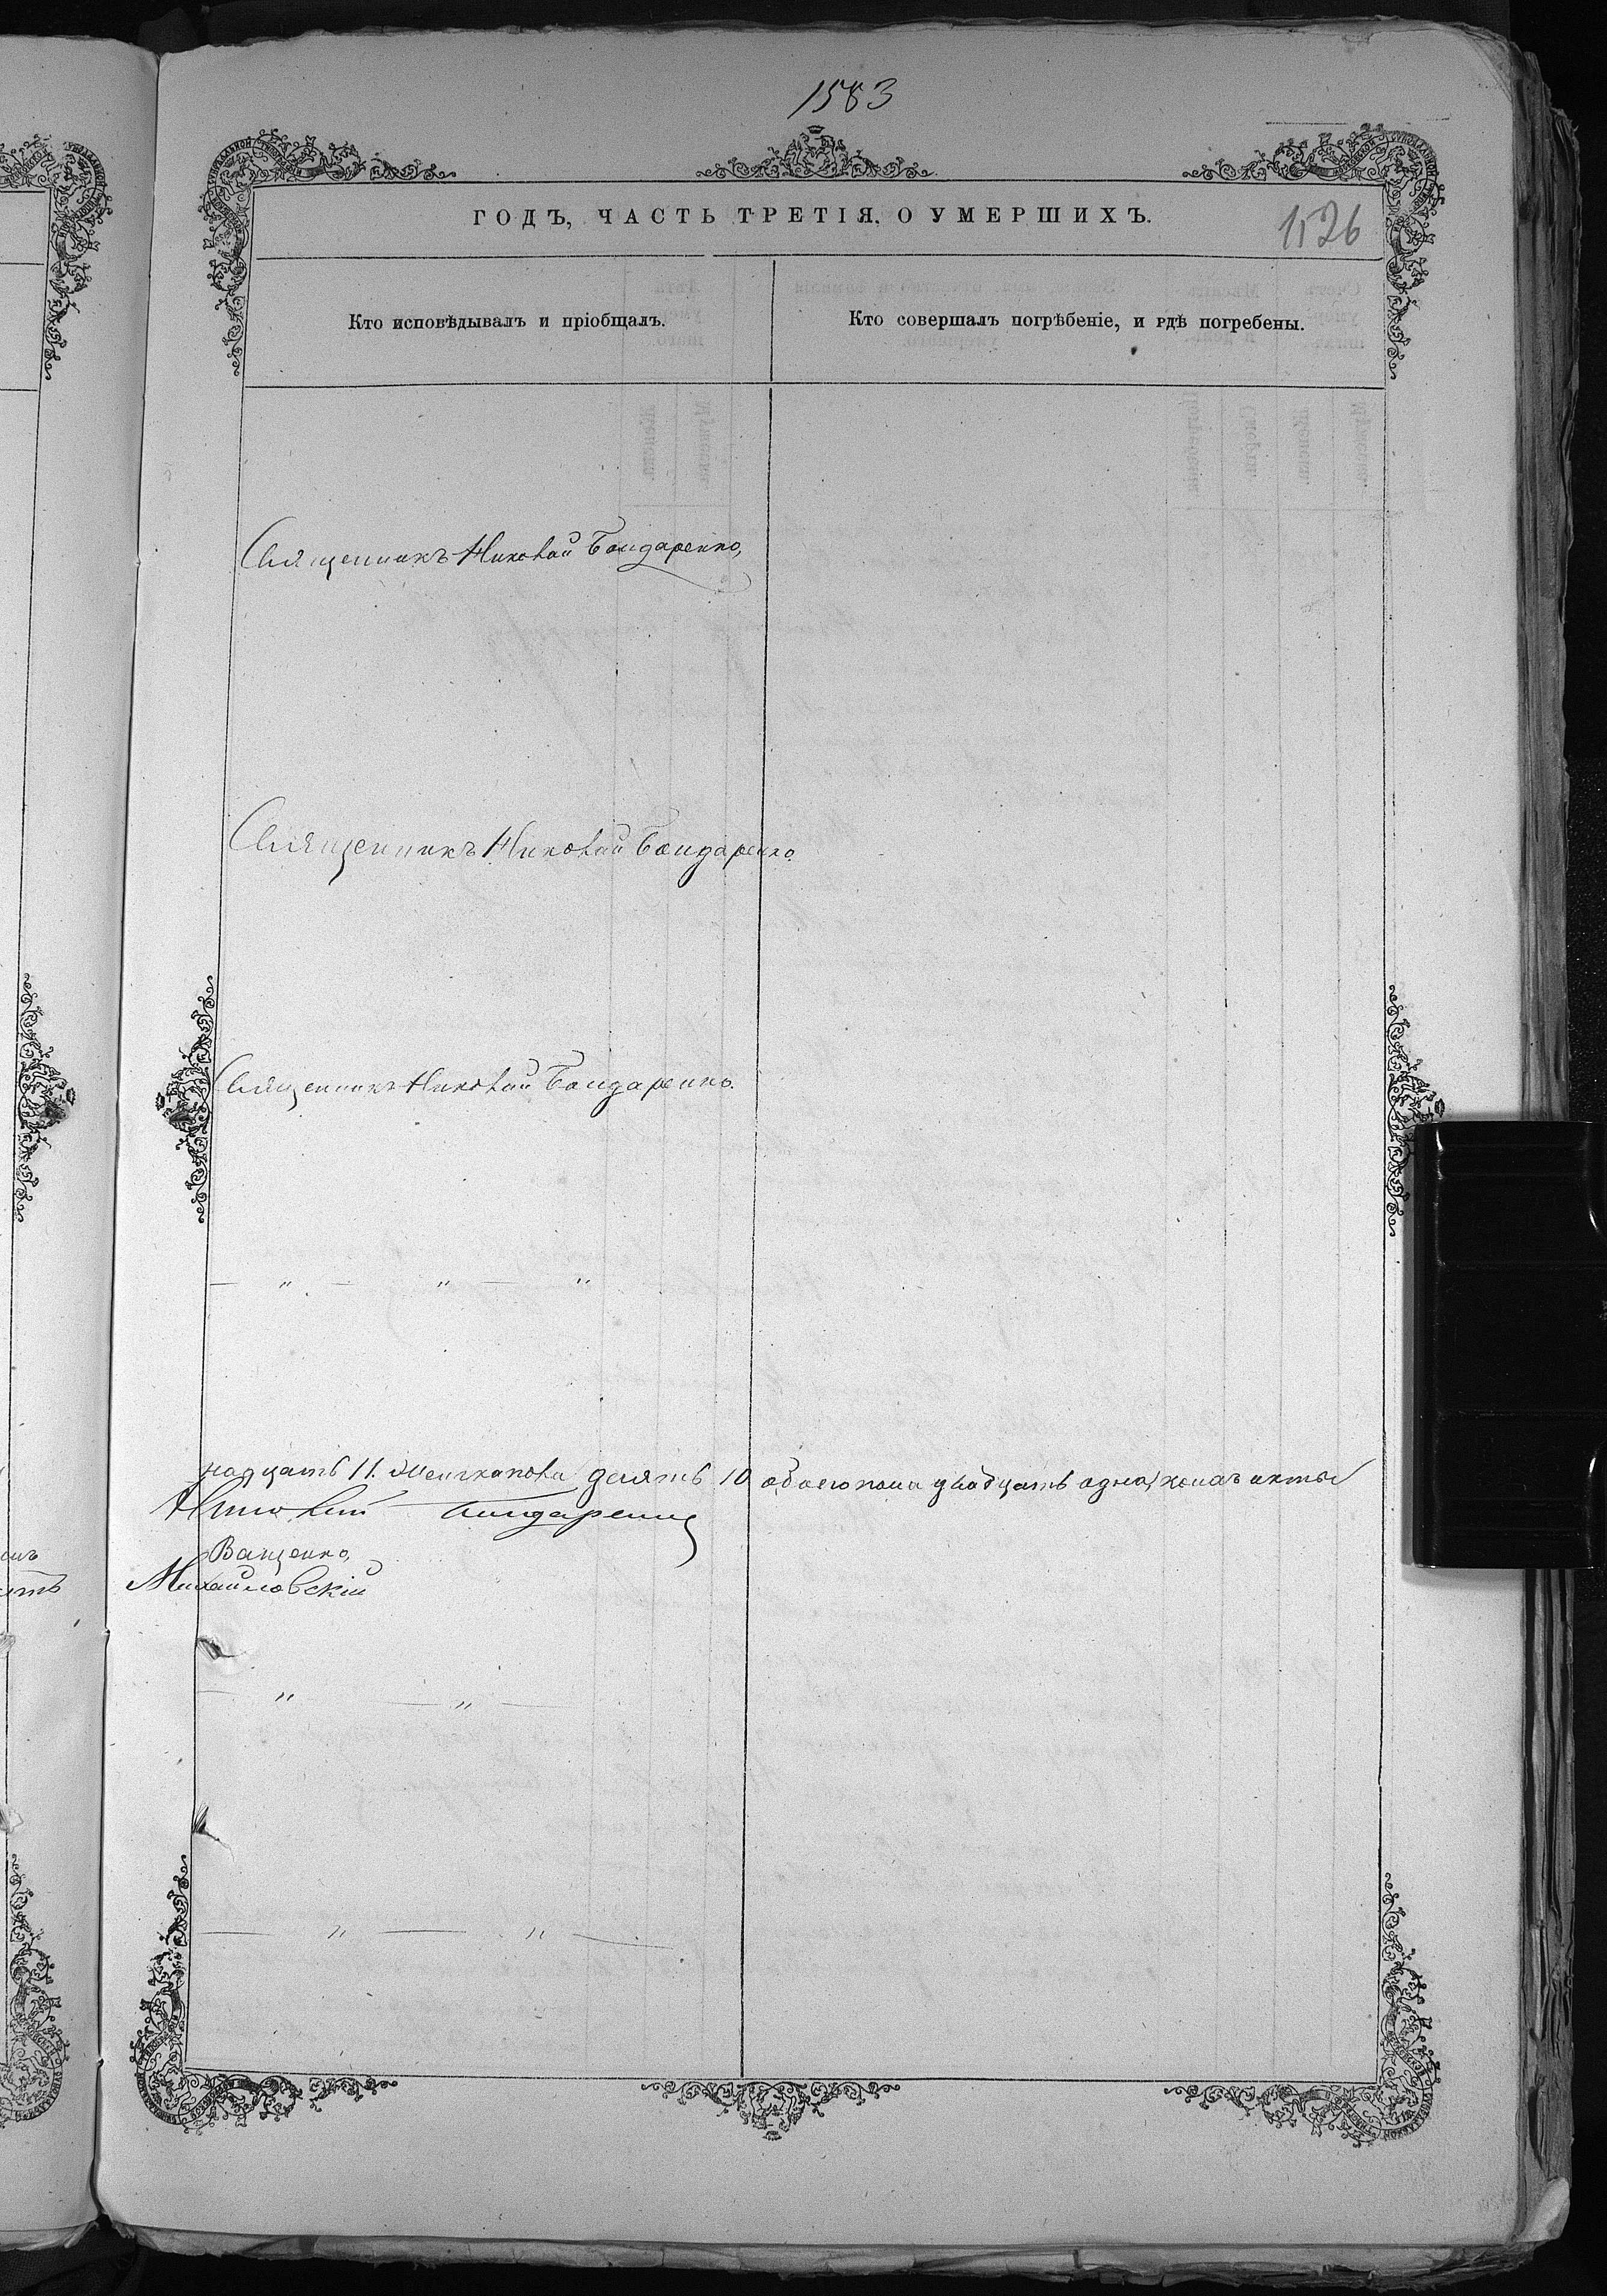 1583
ГОДЪ, ЧАСТЬ ТРЕТІЯ, О УМЕРШИХЪ.
1526
Кто исповѣдывалъ и пріобщалъ.
Кто совершалъ погрѣбеніе, и гдѣ погребены.
Священникъ Николай Бондаренко,
Священникъ Николай Бондаренко.
Священникъ Николай Бондаренко.
— „ — „ — „
надцать 11. Женскаго пола десять 10 обоего пола двадцать одна
Николай Бондаренко
Ващенко,
Михайловскій
— „ — „ —
— „ — „ —